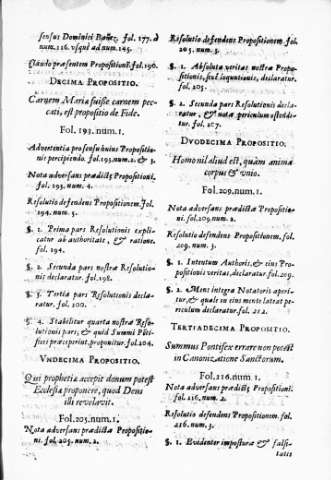 sensus Dominici Bañez. fol. 177. à
num. 116. vsqué ad num. 145.
præsentem Propositionẽ. fol. 196.
DECIMA PROPOSITIO.
Carnem Mariæ fuisse carnem pec-
cati, est propositio de Fide.
Fol. 193. num. 1.
Advertentia pro sensu huius Propositio-
nis percipiendo. fol. 193. num. 2. & 3.
Nota adversans prædictæ Propositioni.
fol. 193. num. 4.
Resolutio defendens Propositionem. fol.
194. num. 5.
§. 1. Prima pars Resolutionis expli-
catur ab authoritate, & ratione.
fol. 194.
§. 2. Secunda pars nostræ Resolutio-
nis declaratur. fol. 198.
§. 3. Tertia pars Resolutionis decla-
ratur. fol. 200.
§. 4. Stabilitur quarta nostræ Reso-
lutionis pars, & quid Summi Põti-
fices præceperint, proponitur. fol. 204.
VNDECIMA PROPOSITIO.
Qui prophetiæ accepit donum potest
Ecclesia proponere, quod Deus
illi revelavit.
Fol. 205. num. 1.
Nota adversans prædictæ Propositio-
ni. fol. 205. num. 2.
Resolutio defendens Propositionem. fol.
205. num. 3.
§. 1. Absoluta veritas nostræ Propo-
sitionis, sive sequutionis, declaratur.
fol. 205.
§. 2. Secunda pars Resolutionis decla-
ratur, & notæ periculum ostendi-
tur. fol. 207.
DVODECIMA PROPOSITIO.
Homo nil aliud est, quàm anima
corpus & vnio.
Fol. 209. num. 1.
Nota adversans prædictæ Propositio-
ni. fol. 209. num. 2.
Resolutio defendens Propositionem. fol.
209. num. 3.
§. 1. Intentum Authoris, & eius Pro-
positionis veritas, declaratur. fol. 209.
§. 2. Mens integra Notatoris aperi-
tur, & quale ex eius mente lateat pe-
riculum declaratur. fol. 212.
TERTIADECIMA PROPOSITIO.
Summus Pontifex errare non potest
in Canonizatione Sanctorum.
Fol. 216. num. 1.
Nota adversans prædictæ Propositioni.
fol. 216. num. 2.
Resolutio defendens Propositionem. fol.
216. num. 3.
§. 1. Evidenter imposturæ & falsi-
tatis